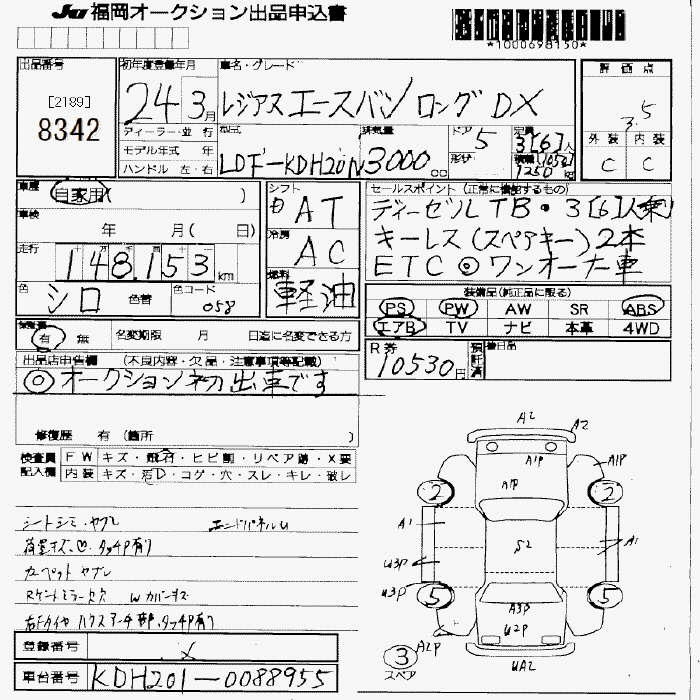 JU 福岡オークション出品申込書
*1000698150*
出品番号
[2189]
8342
初年度登録年月
24年3月
車名・グレード
レジアスエースバン ロング DX
評価点
3.5
外装 内装
C C
ディーラー・並行
モデル年式 年
ハンドル 左・右
型式
LDF-KDH201N
排気量
3000 cc
ドア 5
形状
定員
3[6]人
積載 (1050)
1250 kg
車歴
自家用
車検
年 月( 日)
走行
148,153 km
色
シロ
色替
カラーコード
058
シフト
AT
冷房
AC
燃料
軽油
セールスポイント (正常に機能するもの)
ディーゼルTB・3[6]人乗
キーレス(スペアキー)2本
ETC ◎ワンオーナー車
装備品(純正品に限る)
PS PW AW SR ABS
エアB TV ナビ 本革 4WD
有 無
名変期限 月 日迄に名変できる方
R券
10530円
預託済
後日品
出品店申告欄 (不良内容・欠品・注意事項等記載)
◎オークション初出車です
修復歴 有 (箇所 )
検査員記入欄
FW キズ・飛石・ヒビ割・リペア跡・X要
内装 キズ・汚D・コゲ・穴・スレ・キレ・破レ
シートシミ・ヤブレ エンドパネルU
カーペット ヤブレ
登録番号
車台番号
KDH201-0088955
A2
A2
A1P
A1P
A1P
2 2
A1
A1
S2
U3P
U3P
5 5
A3P
U2P
A2P
UA2
3
スペア